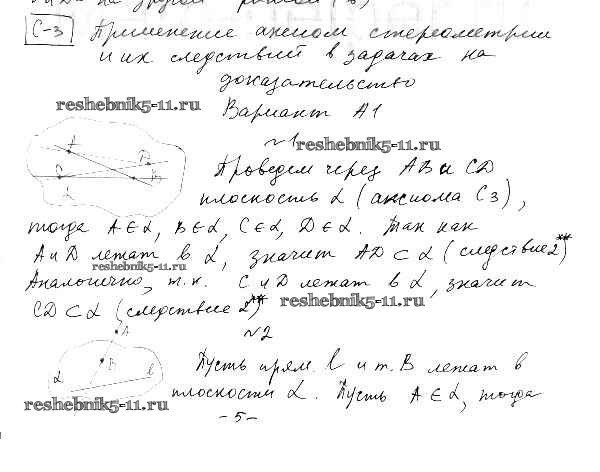 С-3 Применение аксиом стереометрии
и их следствий в задачах на
доказательство
reshebnik5-11.ru
Вариант А1
№1 reshebnik5-11.ru
A
D
C
B
α
Проведем через АВ и CD
плоскость α (аксиома С3),
тогда A∈α, B∈α, C∈α, D∈α. Так как
А и D лежат в α, значит AD⊂α (следствие 2**)
reshebnik5-11.ru
Аналогично, т.к. С и D лежат в α, значит
CD⊂α (следствие 2**) reshebnik5-11.ru
№2
A
B
α
l
Пусть прям. l и т. В лежат в
плоскости α. Пусть A∈α, тогда
reshebnik5-11.ru
-5-